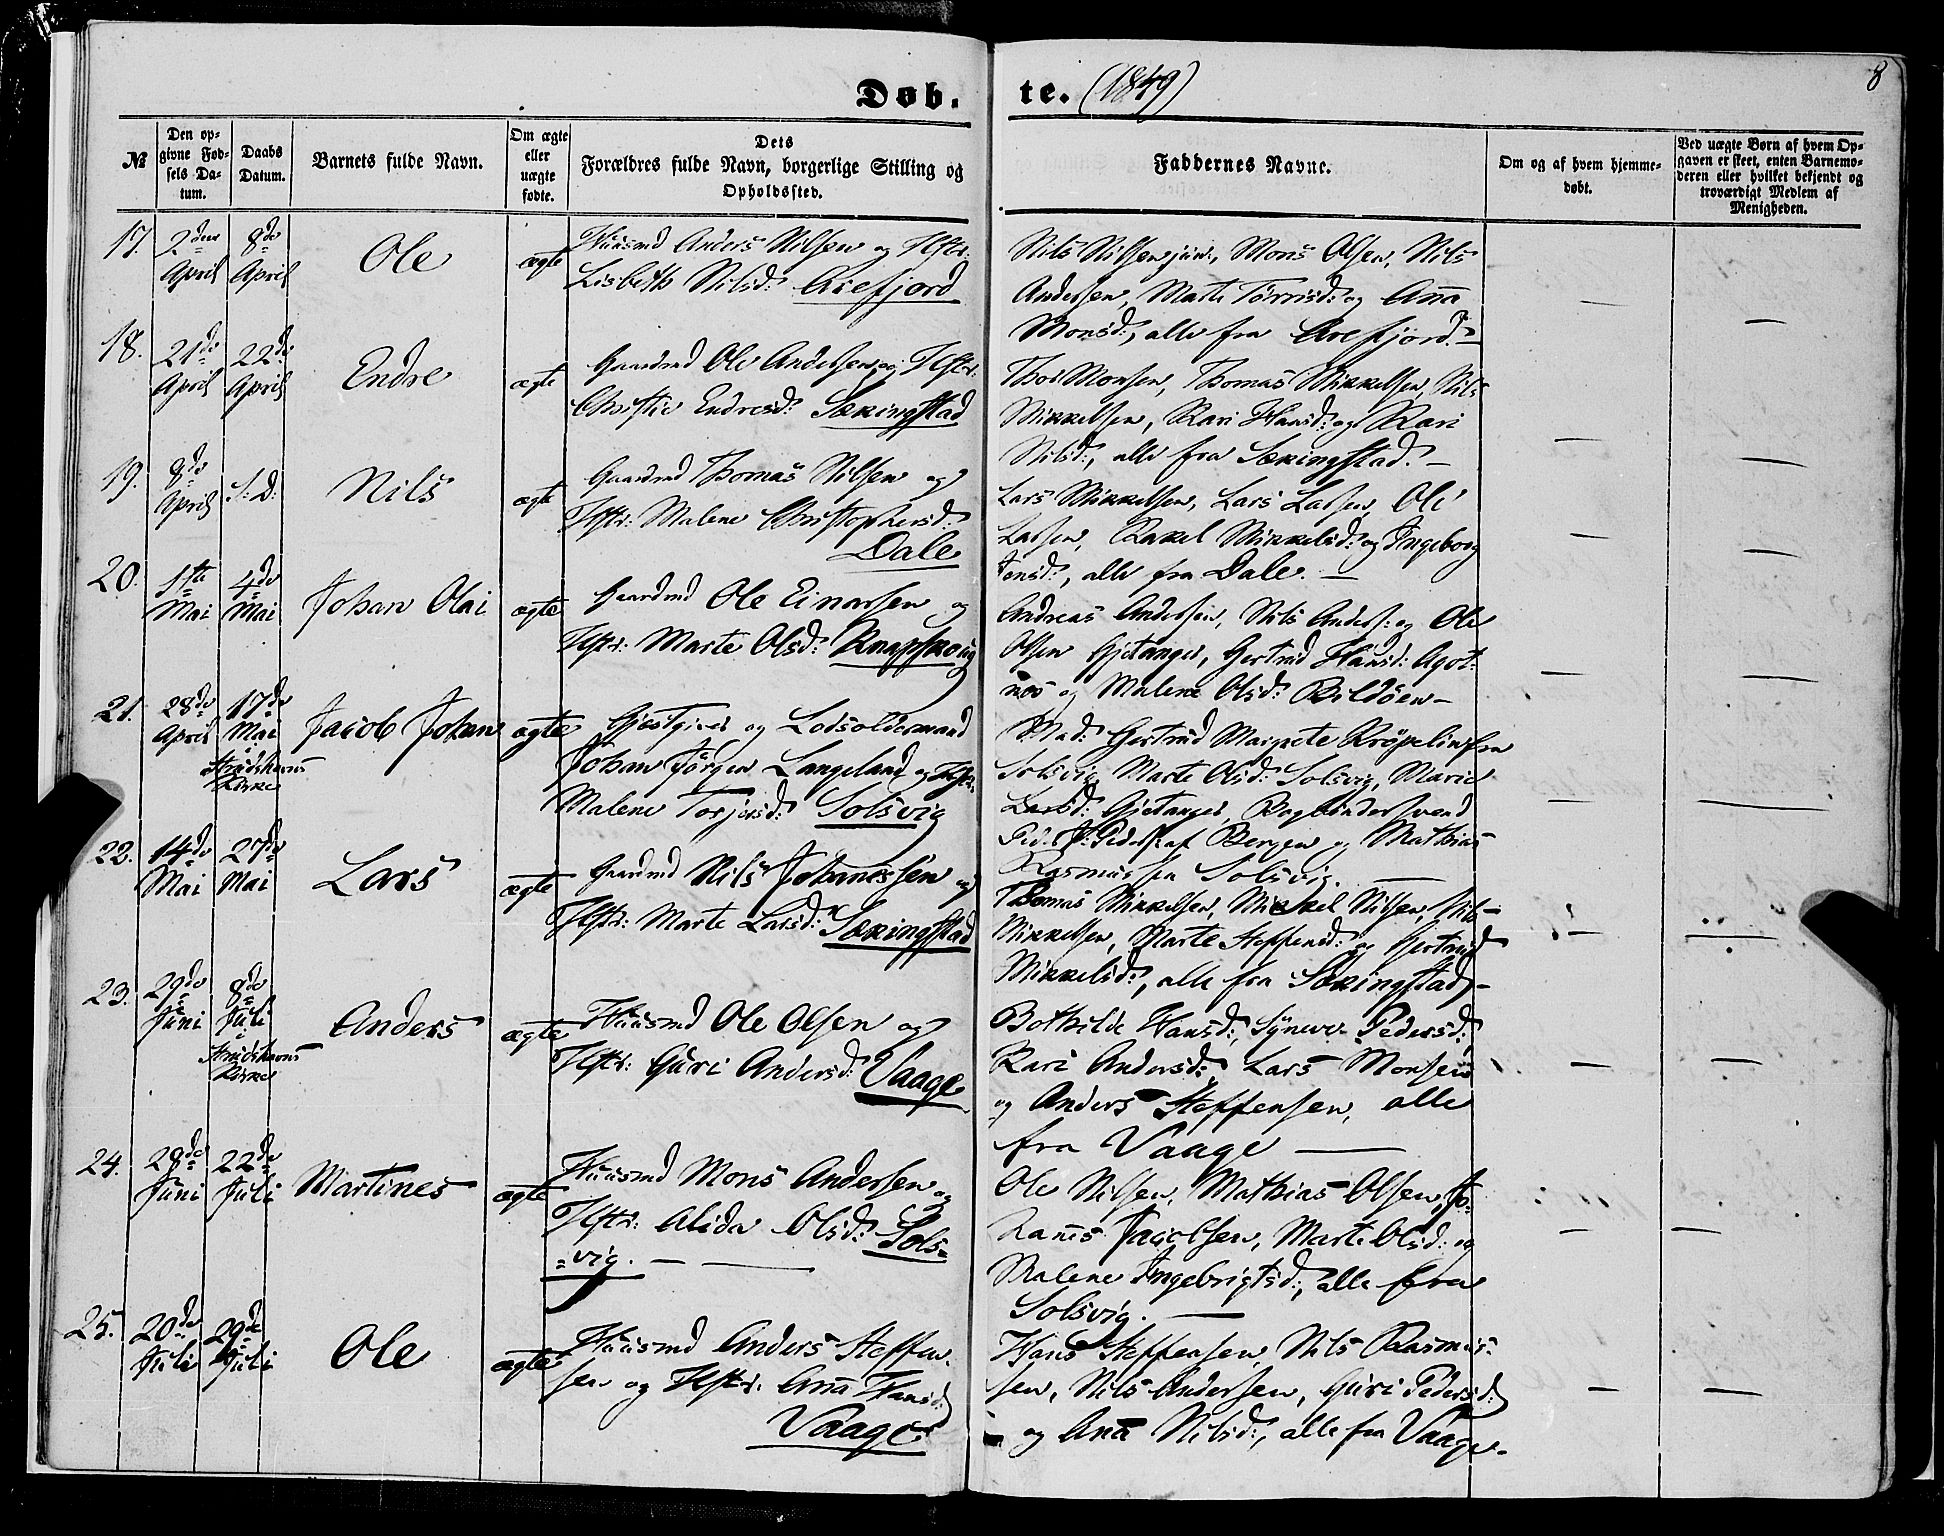 Døb.
te. (1849)
8
№
Den opgivne Fødsels Datum.
Daabs Datum.
Barnets fulde Navn.
Om ægte eller uægte fødte.
Dets Forældres fulde Navn, borgerlige Stilling og Opholdssted.
Faddernes Navne.
Om og af hvem hjemmedøbt.
Ved uægte Børn af hvem Opgaven er skeet, enten Barnemoderen eller hvilket bekjendt og troværdigt Medlem af Menigheden.
17. 2den April
8de April
Ole
ægte
Huusmd Anders Nilsen og Hstr:
Lisbeth Nilsd: Arefjord
Nils Nilsen jun., Mons Olsen, Nils
Andersen, Marte Torrisd: og Anna
Monsd:, alle fra Arefjord. —
18. 21de April
22de April
Endre
ægte
Gaardmd Ole Andersen og Hstr:
Christie Endresd: Sækingstad
Thos Monsen, Thomas Mikkelsen, Nils
Mikkelsen, Kari Hansd: og Kari
Nilsd:, alle fra Sækingstad. —
19. 8de April
S: D:
Nils
ægte
Gaardmd Thomas Nilsen og
Hstr: Malene Christophersd:
Dale
Lars Mikkelsen, Lars Larsen, Ole
Larsen, Rakel Mikkelsd: og Ingeborg
Jensd:, alle fra Dale. —
20. 1ste Mai
4de Mai
Johan Olai
ægte
Gaardmd Ole Einarsen og
Hstr: Marte Olsd: Knapskoug
Andreas Andersen, Nils Anders: og Ole
Olsen Gjetanger, Gertrud Hansd: Agot-
nes og Malene Olsd: Bildøen —
21. 28de April
17de Mai
Strudshavns Kirke
Jacob Johan
ægte
Gjestgiver og Lodsoldermand
Johan Jørgen Langeland og Hstr:
Malene Torjersd: Solsvig
Mad: Gertrud Margrete Krøpelin fra
Solsvig, Marte Olsd: Solsvig, Marie
Larsd: Gjetanger, Bogbindersvend
Ped. J. Peders. af Bergen og Mathias
Rasmussen Solsvig. —
22. 14de Mai
27de Mai
Lars
ægte
Gaardmd Nils Johanessen og
Hstr: Marte Larsd: Sækingstad
Thomas Mikkelsen, Mikkel Nilsen, Nils
Mikkelsen, Marte Steffensd: og Gertrud
Mikkelsd:, alle fra Sækingstad —
23. 29de Juni
8de Juli
Strudshavns Kirke
Anders
ægte
Huusmd Ole Olsen og
Hstr: Guri Andersd: Vaage
Bothilde Hansd:, Synneve Pedersd:
Kari Andersd:, Lars Monsen
og Anders Steffensen, alle
fra Vaage —
24. 28de Juni
22de Juli
Martines
ægte
Huusmd Mons Andersen og
Hstr: Alida Olsd: Sols-
=vig. —
Ole Nilsen, Mathias Olsen, Jo-
hanes Jacobsen, Marte Olsd: og
Malene Ingebrigtsd:, alle fra
Solsvig. —
25. 20de Juli
29de Juli
Ole
ægte
Huusmd Anders Steffen-
sen og Hstr: Anna Hansd:
Vaage
Hans Steffensen, Nils Rasmus-
sen, Nils Andersen, Guri Pedersd:
og Anna Nilsd:, alle fra Vaage. —